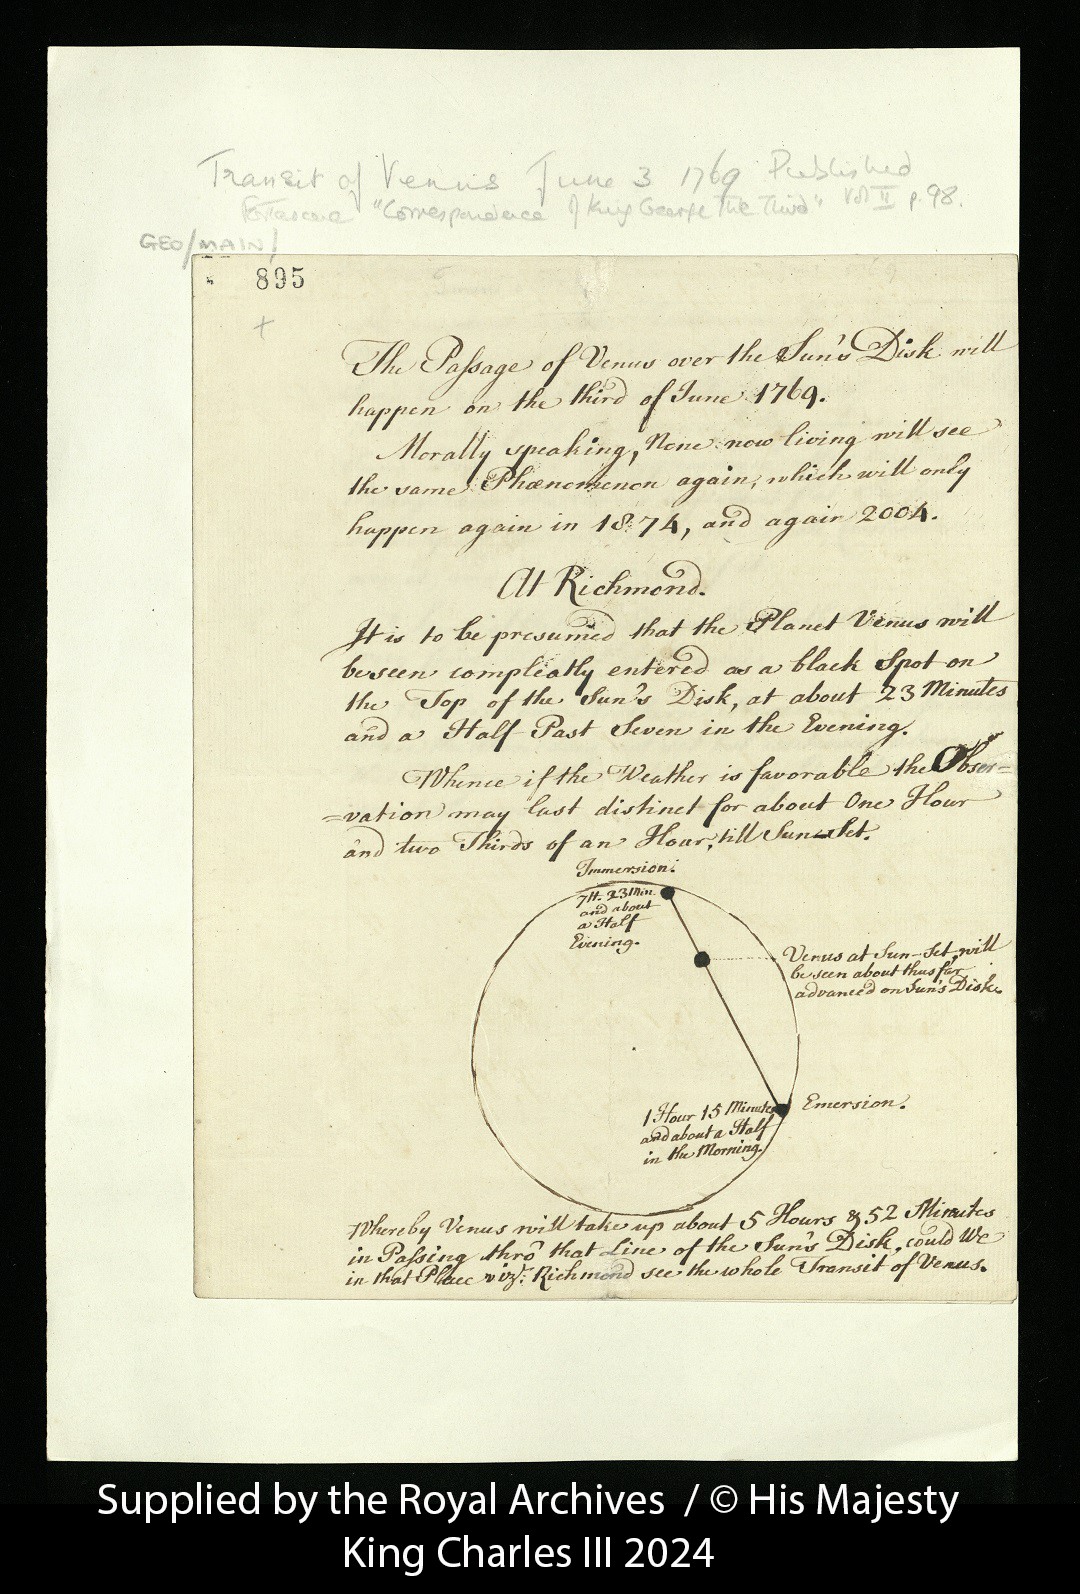 Transit of Venus June 3 1769 Published
Fortescue "Correspondence of King George The Third" Vol II p.98.
GEO/MAIN/
895
The Passage of Venus over the Sun's Disk will
happen on the third of June 1769.
Morally speaking, None now living will see
the same Phænomenon again, which will only
happen again in 1874, and again 2004.
At Richmond.
It is to be presumed that the Planet Venus will
be seen compleatly entered as a black Spot on
the Top of the Sun's Disk, at about 23 Minutes
and a Half Past Seven in the Evening.
Whence if the Weather is favorable the Obser=
=vation may last distinct for about One Hour
and two Thirds of an Hour, till Sun-Set.
Immersion:
7H. 23Min.
and about
a Half
Evening.
Venus at Sun-Set, will
be seen about thus far
advanced on Sun's Disk.
1 Hour 15 Minutes
and about a Half
in the Morning.
Emersion.
Whereby Venus will take up about 5 Hours & 52 Minutes
in Passing thrō that Line of the Sun's Disk, could We
in that Place vizt: Richmond see the whole Transit of Venus.
Supplied by the Royal Archives / © His Majesty
King Charles III 2024